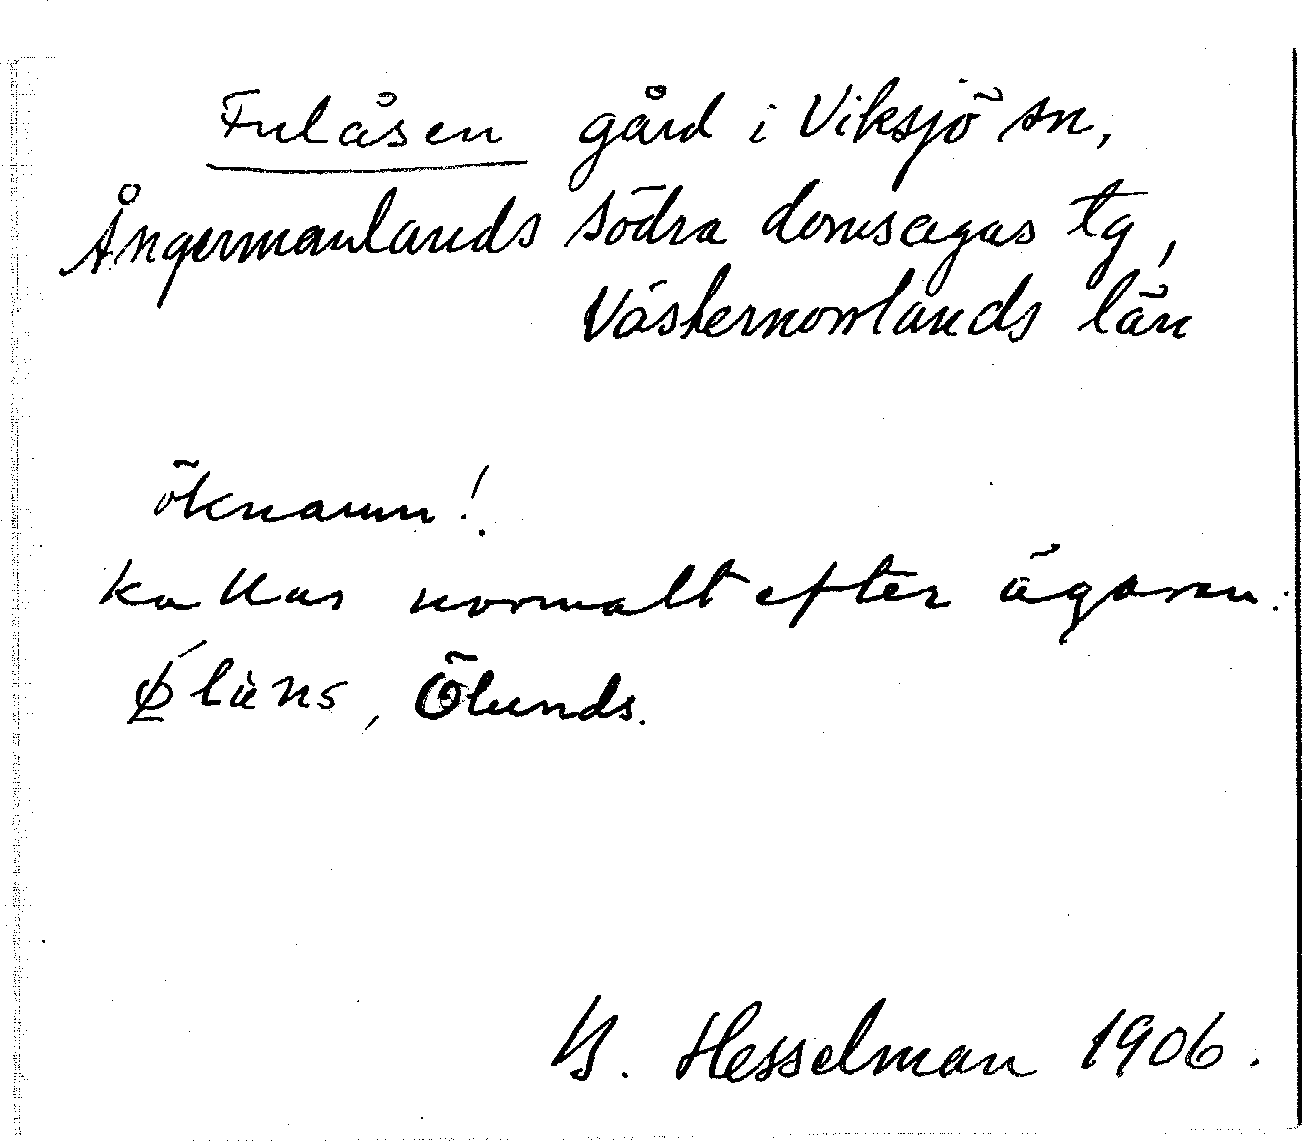 Fulåsen gård i Viksjö sn,
Ångermanlands södra domsagas tg,
Västernorrlands län
öknamn!
kallas normalt efter ägaren:
Ölunds.
B. Hesselman 1906.